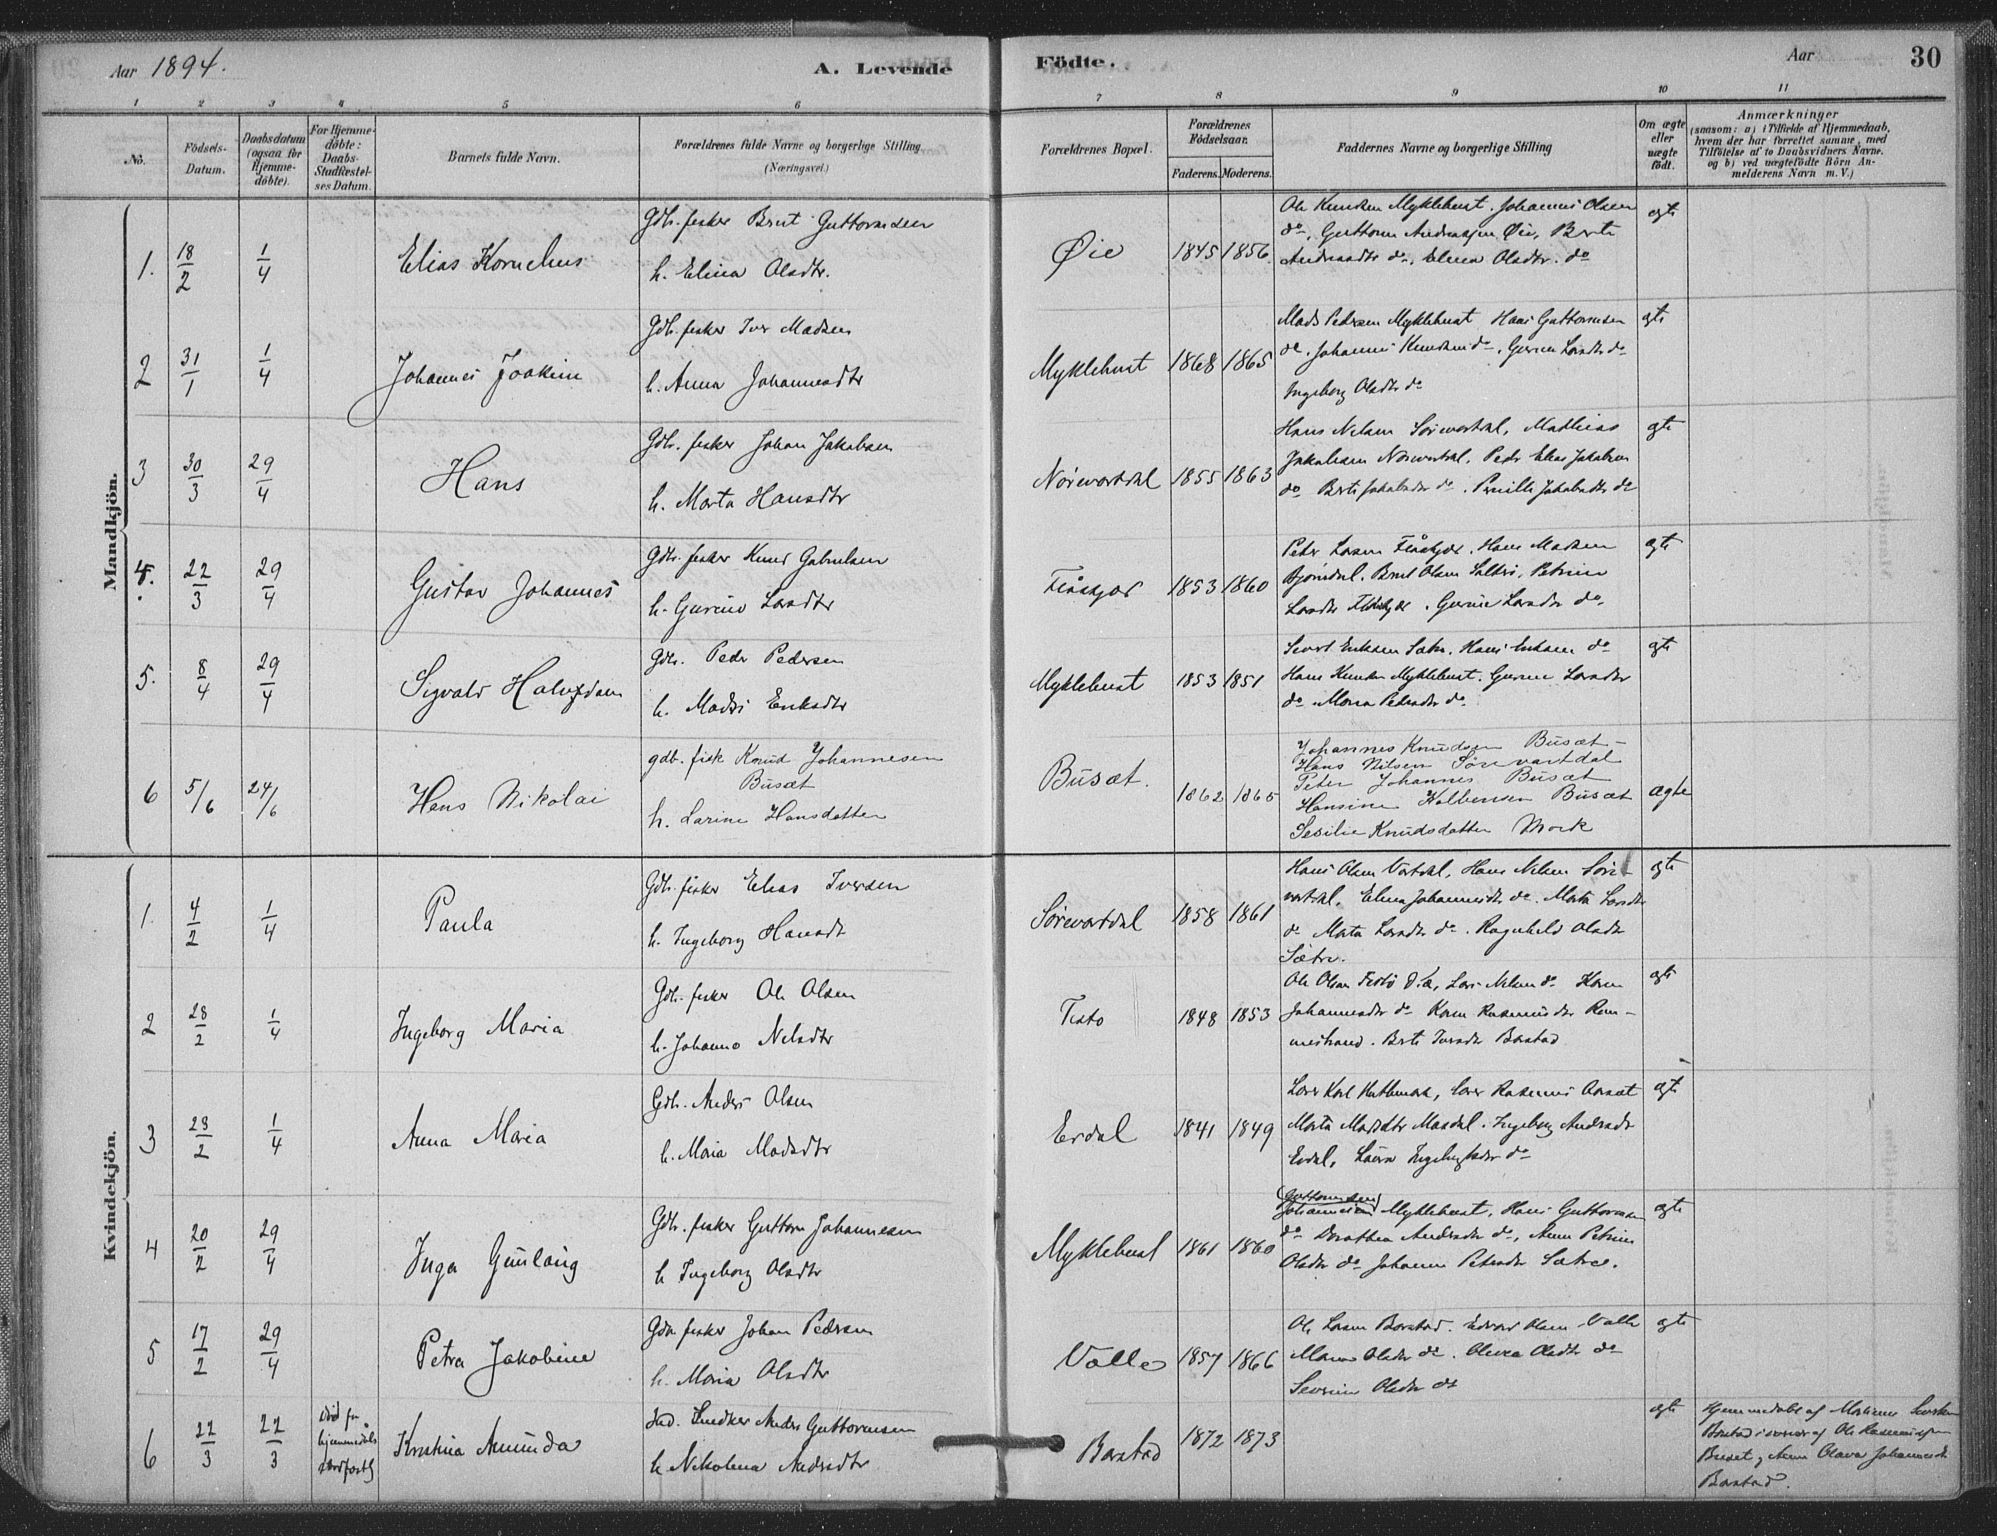 Aar 1894.
A. Levende
Födte.
Aar
30
1 2 3 4 5 6 7 8 9 10 11
No.
Födsels-
Datum.
Daabsdatum
(ogsaa for
Hjemme-
döbte).
For Hjemme-
döbte:
Daabs-
Stadfæstel-
ses Datum.
Barnets fulde Navn.
Forældrenes fulde Navne og borgerlige Stilling
(Næringsvei.)
Forældrenes Bopæl.
Forældrenes
Födselsaar.
Faderens. Moderens.
Faddernes Navne og borgerlige Stilling
Om ægte
eller
uægte
födt.
Anmærkninger
(saasom: a) i Tilfælde af Hjemmedaab,
hvem der har forrettet samme, med
Tilföielse af to Daabsvidners Navne.
og b) ved uægtefödte Börn An-
melderens Navn m. V.)
Mandkjön.
1. 18/2 1/4 Elias Kornelius
Gdb. fisker Brut Guttormsen
h. Elina Olsdtr.
Øie 1845 1856
Ole Knudsen Myklebust. Johannes Olsen
do, Guttorm Andreassen Øie, Berte
do. Elina Olsdtr. do
ægte
2 31/1 1/4 Johannes Joakim
Gdb. fisker Iver Madsen
h. Anna Johannesdtr
Myklebust 1868 1865
Mads Pedersen Myklebust Hans Guttormsen
do. Johannes Knudsen do, Gurine Larsdtr do
Ingeborg Olsdtr do
ægte
3 30/3 29/4 Hans
Gdb. fisker Johan Jakobsen
h. Marta Hansdtr
Nörevartdal 1855 1863
Hans Nelsen Sörevartdal, Mathias
Jakobsen Nörevartdal, Peder Elias Jakobsen
do Berte Jakobsdtr do. Pernille Jakobsdtr do
ægte
4. 22/3 29/4 Gustav Johannes
Gdb. fisker Knud Gabrielsen
h. Gurine Larsdtr
Flåskjær 1853 1860
Peter Larsen Flåskjær. Hans Madsen
Bjørndal. Brut Olsen Petrine
Larsdtr Flåskjær. Gurine Larsdtr do.
ægte
5. 8/4 29/4 Sigvald Halvfdan
Gdb. Peder Pedersen
h. Madsi Eriksdtr
Myklebust 1853 1851
Sivert Eriksen Sætre. Hans Eriksen do
Hans Knudsen Myklebust. Gurine Larsdtr
do Maria Pedersdtr do.
ægte
6 5/6 24/6 Hans Nikolai
gdb. fisk Knud Johannesen
Busæt
h. Larine Hansdatter
Busæt. 1862 1865
Johannes Knudsen Busæt-
Hans Nilsen Sörevartdal
Peter Johannes Busæt
Hansine Kolbensen Busæt
Sesilie Knudsdatter Mork
ægte
Kvindekjön.
1. 4/2 1/4 Paula
Gdb. fisker Elias Iversen
h. Ingeborg Hansdt
Sörevartdal 1858 1861
Hans Olsen Vartdal, Hans Nelsen Söre-
vartdal, Elina Johannesdtr do. Marta Larsdtr
do Marta Larsdtr do. Ragnhild Olsdtr
Sætre.
ægte
2 28/2 1/4 Ingeborg Maria
Gdb. fisker Ole Olsen
h. Johanne Nelsdtr
Festø 1848 1853
Ole Olsen Festø Lars Nelsen do Karen
Johannesdtr do Karen Rasmusdtr Røn-
nestrand. Berte Iversdtr Barstad
ægte
3 23/2 1/4 Anna Maria
Gdb. Anders Olsen
h. Maria Madsdtr
Erdal 1841 1849
Lærer Karl Lærer Rasmus Aarsæt
Marta Masdal. Ingeborg Andersdtr
Erdal, do
ægte
4 20/2 29/4 Inga Gunlaug
Gdb. fisker Guttorm Johannesen
h Ingeborg Olsdtr
Myklebust 1861 1860
(Guttormsen)
Johannesen Myklebust, Hans Guttormsen
do Dorothea Andersdtr do, Anne Petrine
Olsdtr do Johanne Petersdtr Sætre.
ægte
5 17/2 29/4 Petra Jakobine
Gdb fisker Johan Pedersen
h. Maria Olsdtr
Valle 1857 1866
Ole Larsen Barstad. Edvard Olsen Valle
Maria Olsdtr do. Olivia Olsdtr do
Severine Olsdtr do
ægte
6 22/3 22/3
död før
hjemmedåb
stadfæst
Kristina Amunda
Ind. Snedker Anders Guttormsen
h Nikolina Andersdtr
Barstad 1872 1873
ægte
Hjemmedøbt af Martinus
Barstad i nærvær af Ole Rasmussen
Busæt og Anne Olava Johannesdtr
Barstad.